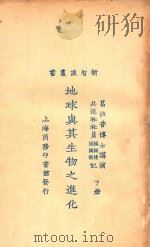 新智識叢書
葛拉普博士講演
下冊
共進社社員
記
地球與其生物之進化
上海商務印書館發行